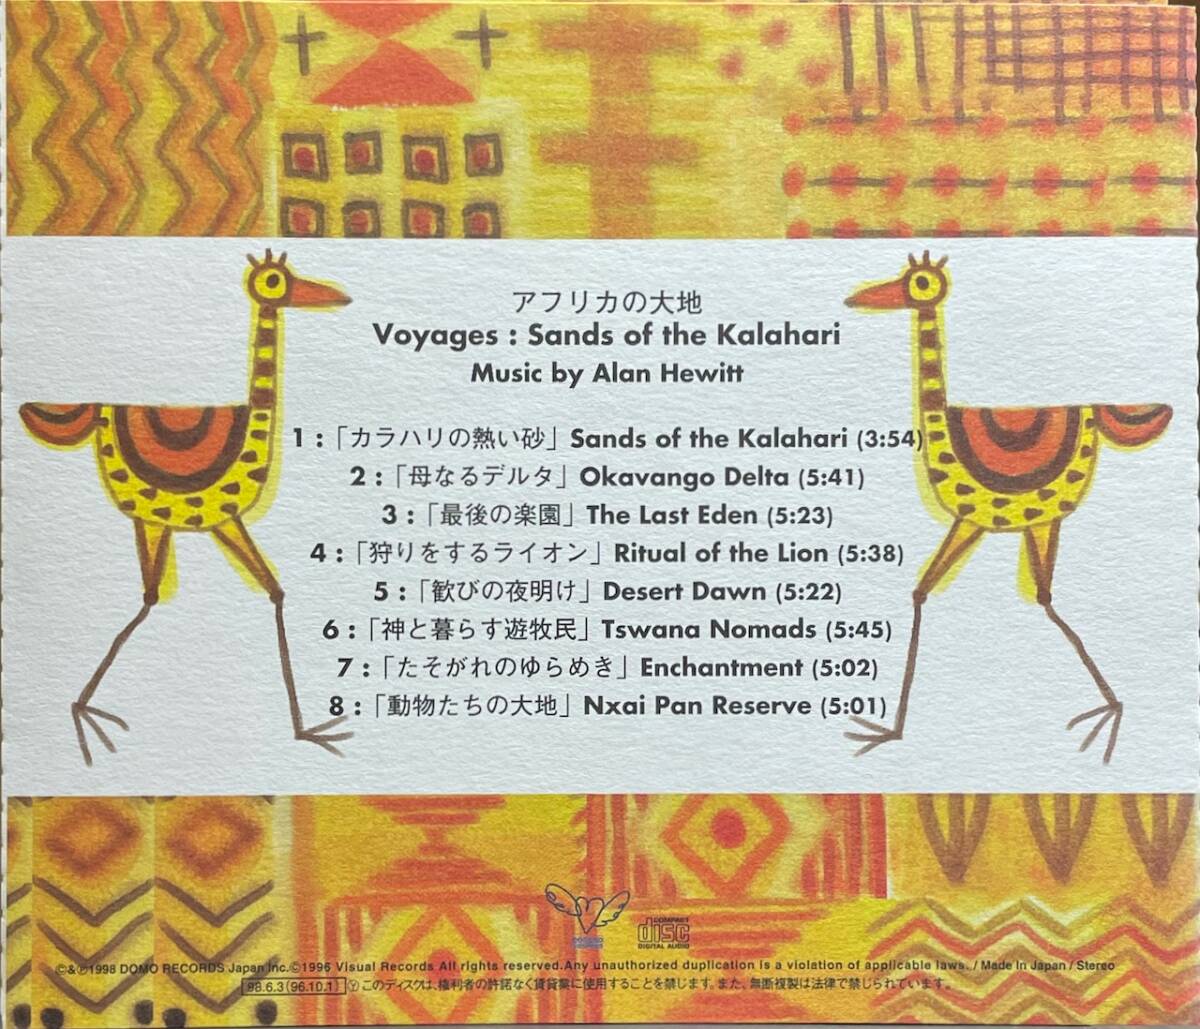 アフリカの大地
Voyages : Sands of the Kalahari
Music by Alan Hewitt
1 :「カラハリの熱い砂」Sands of the Kalahari (3:54)
2 :「母なるデルタ」Okavango Delta (5:41)
3 :「最後の楽園」The Last Eden (5:23)
4 :「狩りをするライオン」Ritual of the Lion (5:38)
5 :「歓びの夜明け」Desert Dawn (5:22)
6 :「神と暮らす遊牧民」Tswana Nomads (5:45)
7 :「たそがれのゆらめき」Enchantment (5:02)
8 :「動物たちの大地」Nxai Pan Reserve (5:01)
COMPACT
disc
DIGITAL AUDIO
©&℗1998 DOMO RECORDS Japan Inc.©1996 Visual Records All rights reserved.Any unauthorized duplication is a violation of applicable laws. / Made In Japan / Stereo
98.6.3(96.10.1) Ⓨ このディスクは、権利者の許諾なく賃貸業に使用することを禁じます。また、無断複製は法律で禁じられています。